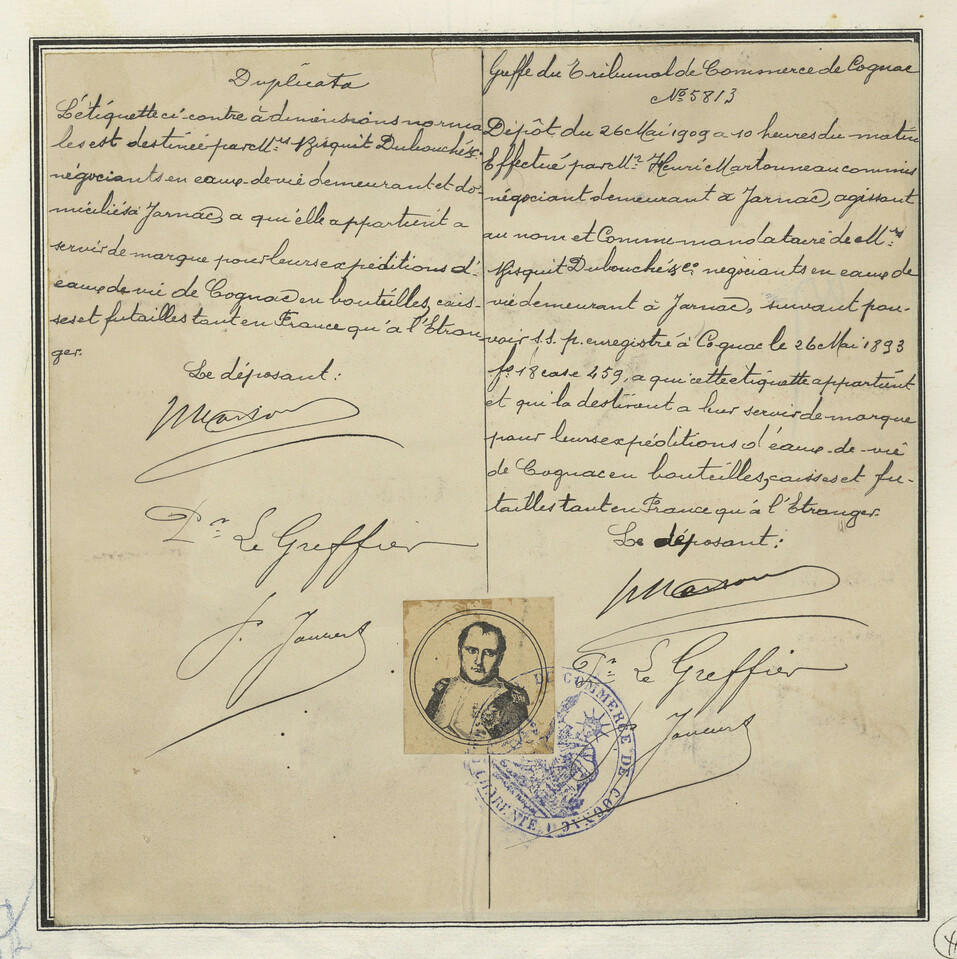 Duplicata
L'étiquette ci-contre à dimensions norma
les est destinée par M.rs Bisquit Dubouché & Co
négociants en eaux-de-vie demeurant et do-
miciliés à Jarnac, a qu'elle appartient a
servir de marque pour leurs expéditions d'
eaux de vie de Cognac en bouteilles, cais-
ses et futailles tant en France qu'à l'Etran-
ger.
Le déposant:
Pr Le Greffier
Greffe du Tribunal de Commerce de Cognac
No 5813
Dépôt du 26 Mai 1909 a 10 heures du matin
Effectué par Mr. Henri Martonneau commis
négociant demeurant à Jarnac, agissant
au nom et Comme mandataire de M.rs
Bisquit Dubouché & Co. négociants en eaux de
vie demeurant à Jarnac, suivant pou-
voir s.s.p. enregistré à Cognac le 26 Mai 1893
fo 18 case 459, a qui cette étiquette appartient
et qui la destinent a leur servir de marque
pour leurs expéditions d'eaux-de-vie
de Cognac en bouteilles, caisses et fu-
tailles tant en France qu'à l'Etranger.
Le déposant:
Pr Le Greffier
DE COMMERCE DE COGNAC
CHARENTE